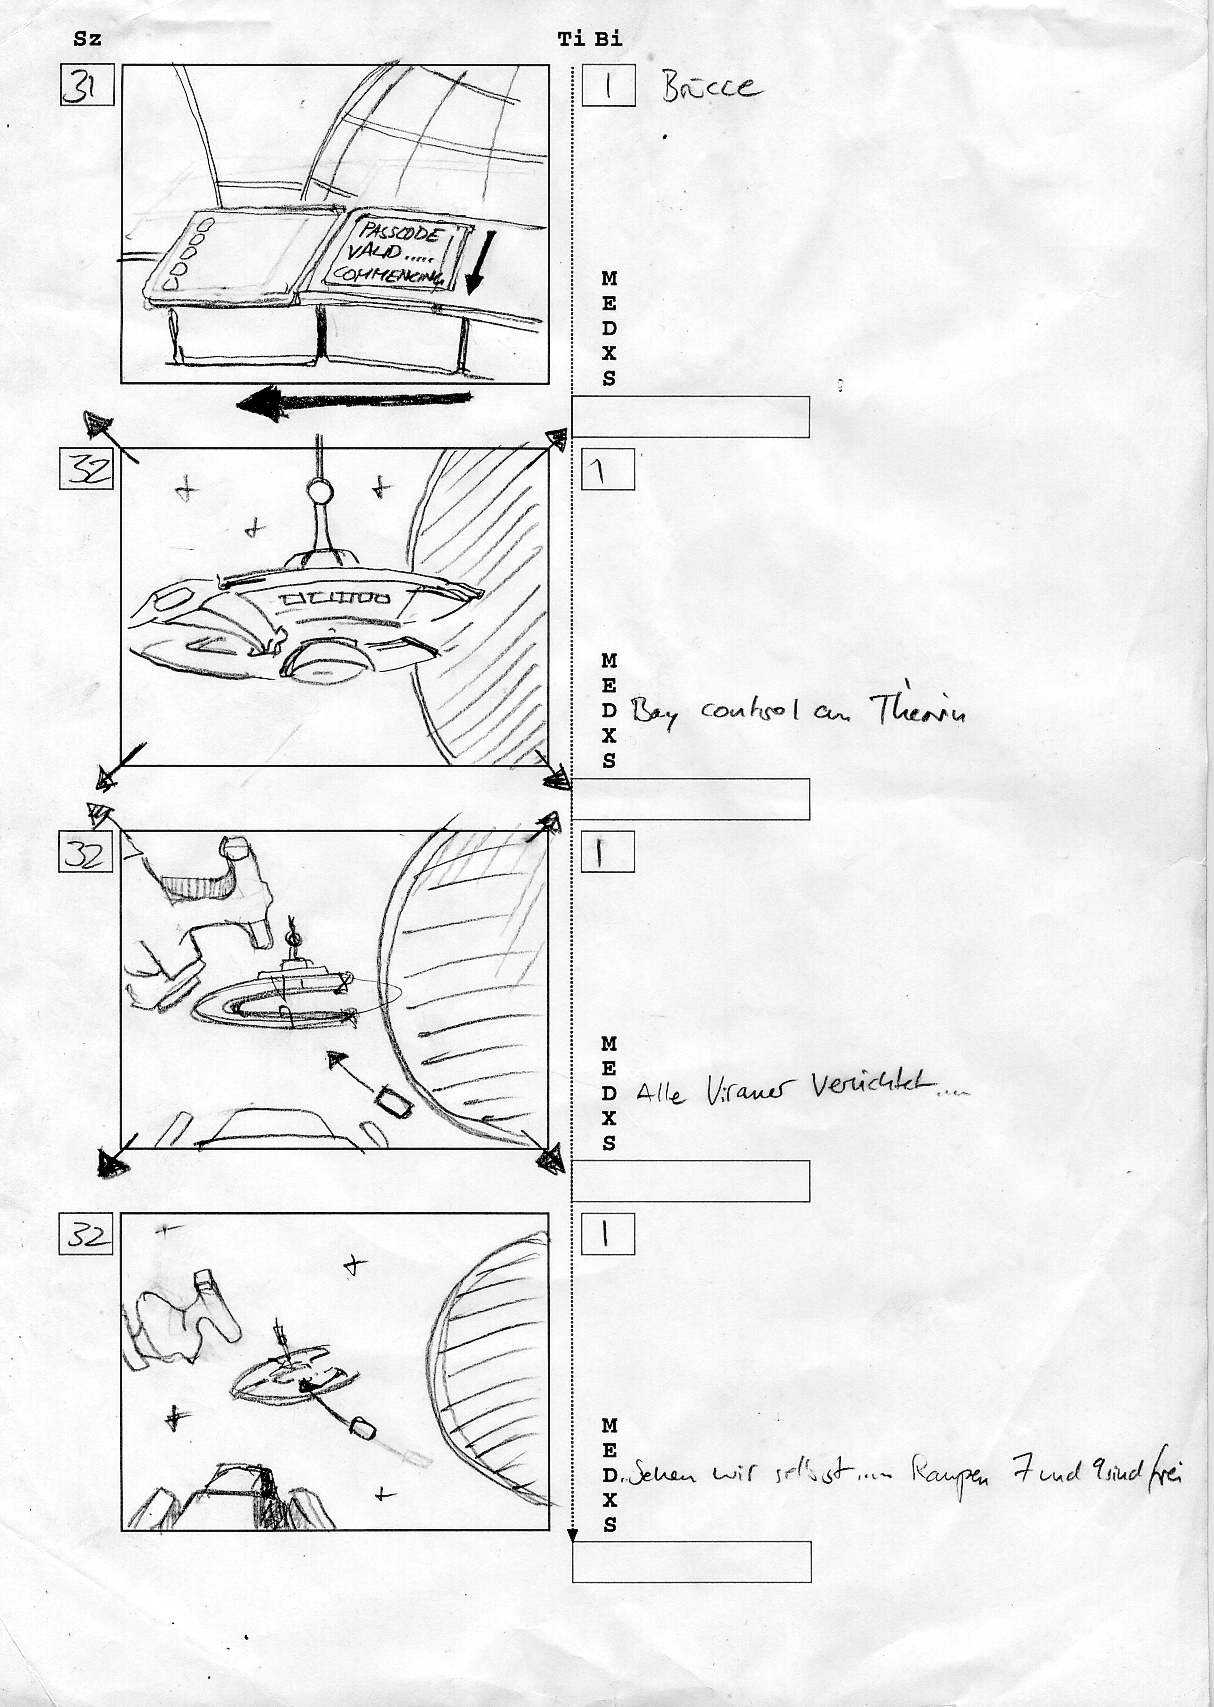 Sz Ti Bi
31
1 Brücce
PASSCODE
VALID.....
COMMENCING
M
E
D
X
S
32
1
M
E
D Bay control an Therin
X
S
32
1
M
E
D Alle Viraner Vernichtet...
X
S
32
1
M
E
D ..Sehen wir selbst.... Rampen 7 und 9 sind frei
X
S